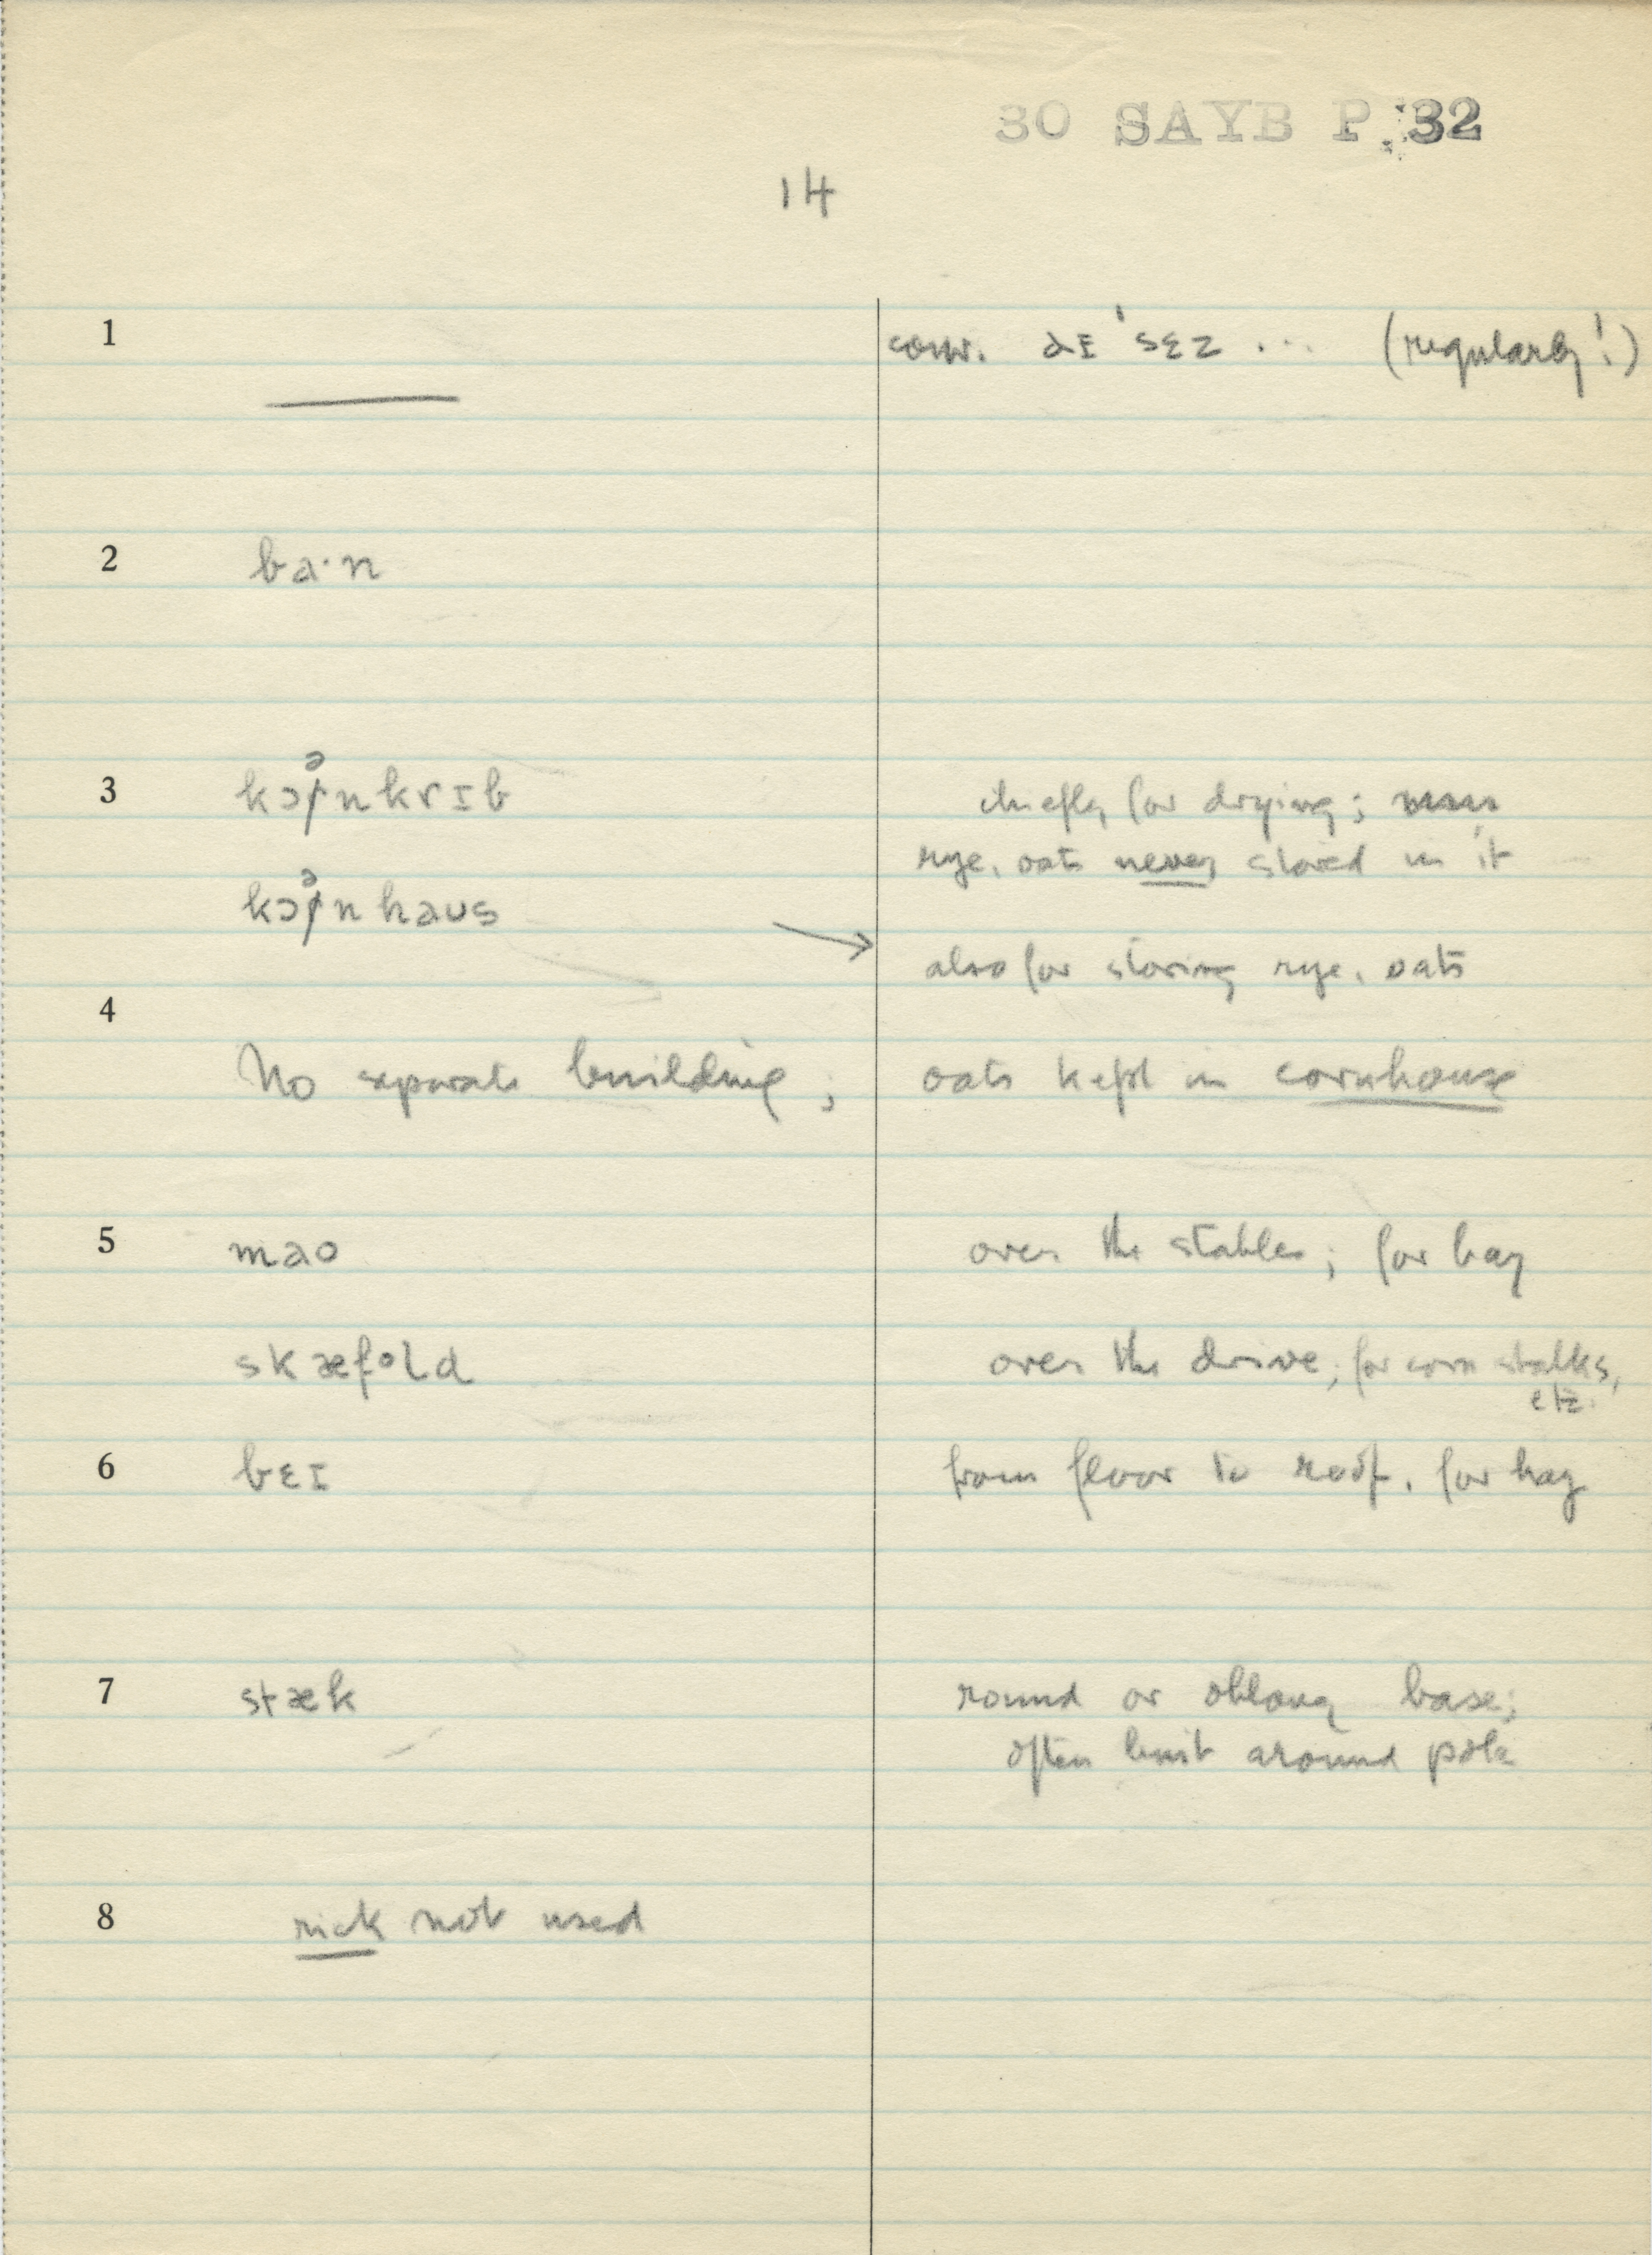 30 SAYB P. 32
14
1 conv. aɪ ˈsɛz ... (regularly!)
2 ba·n
3 kɔᵊnkrɪb chiefly for drying;
rye, oats never stored in it
kɔᵊnhaus
also for storing rye, oats
4
No separate building; oats kept in cornhouse
5 mao over the stables; for hay
skæfold over the drive; for corn stalks,
etc.
6 bɛɪ from floor to roof, for hay
7 stæk round or oblong base;
often built around pole
8 rick not used